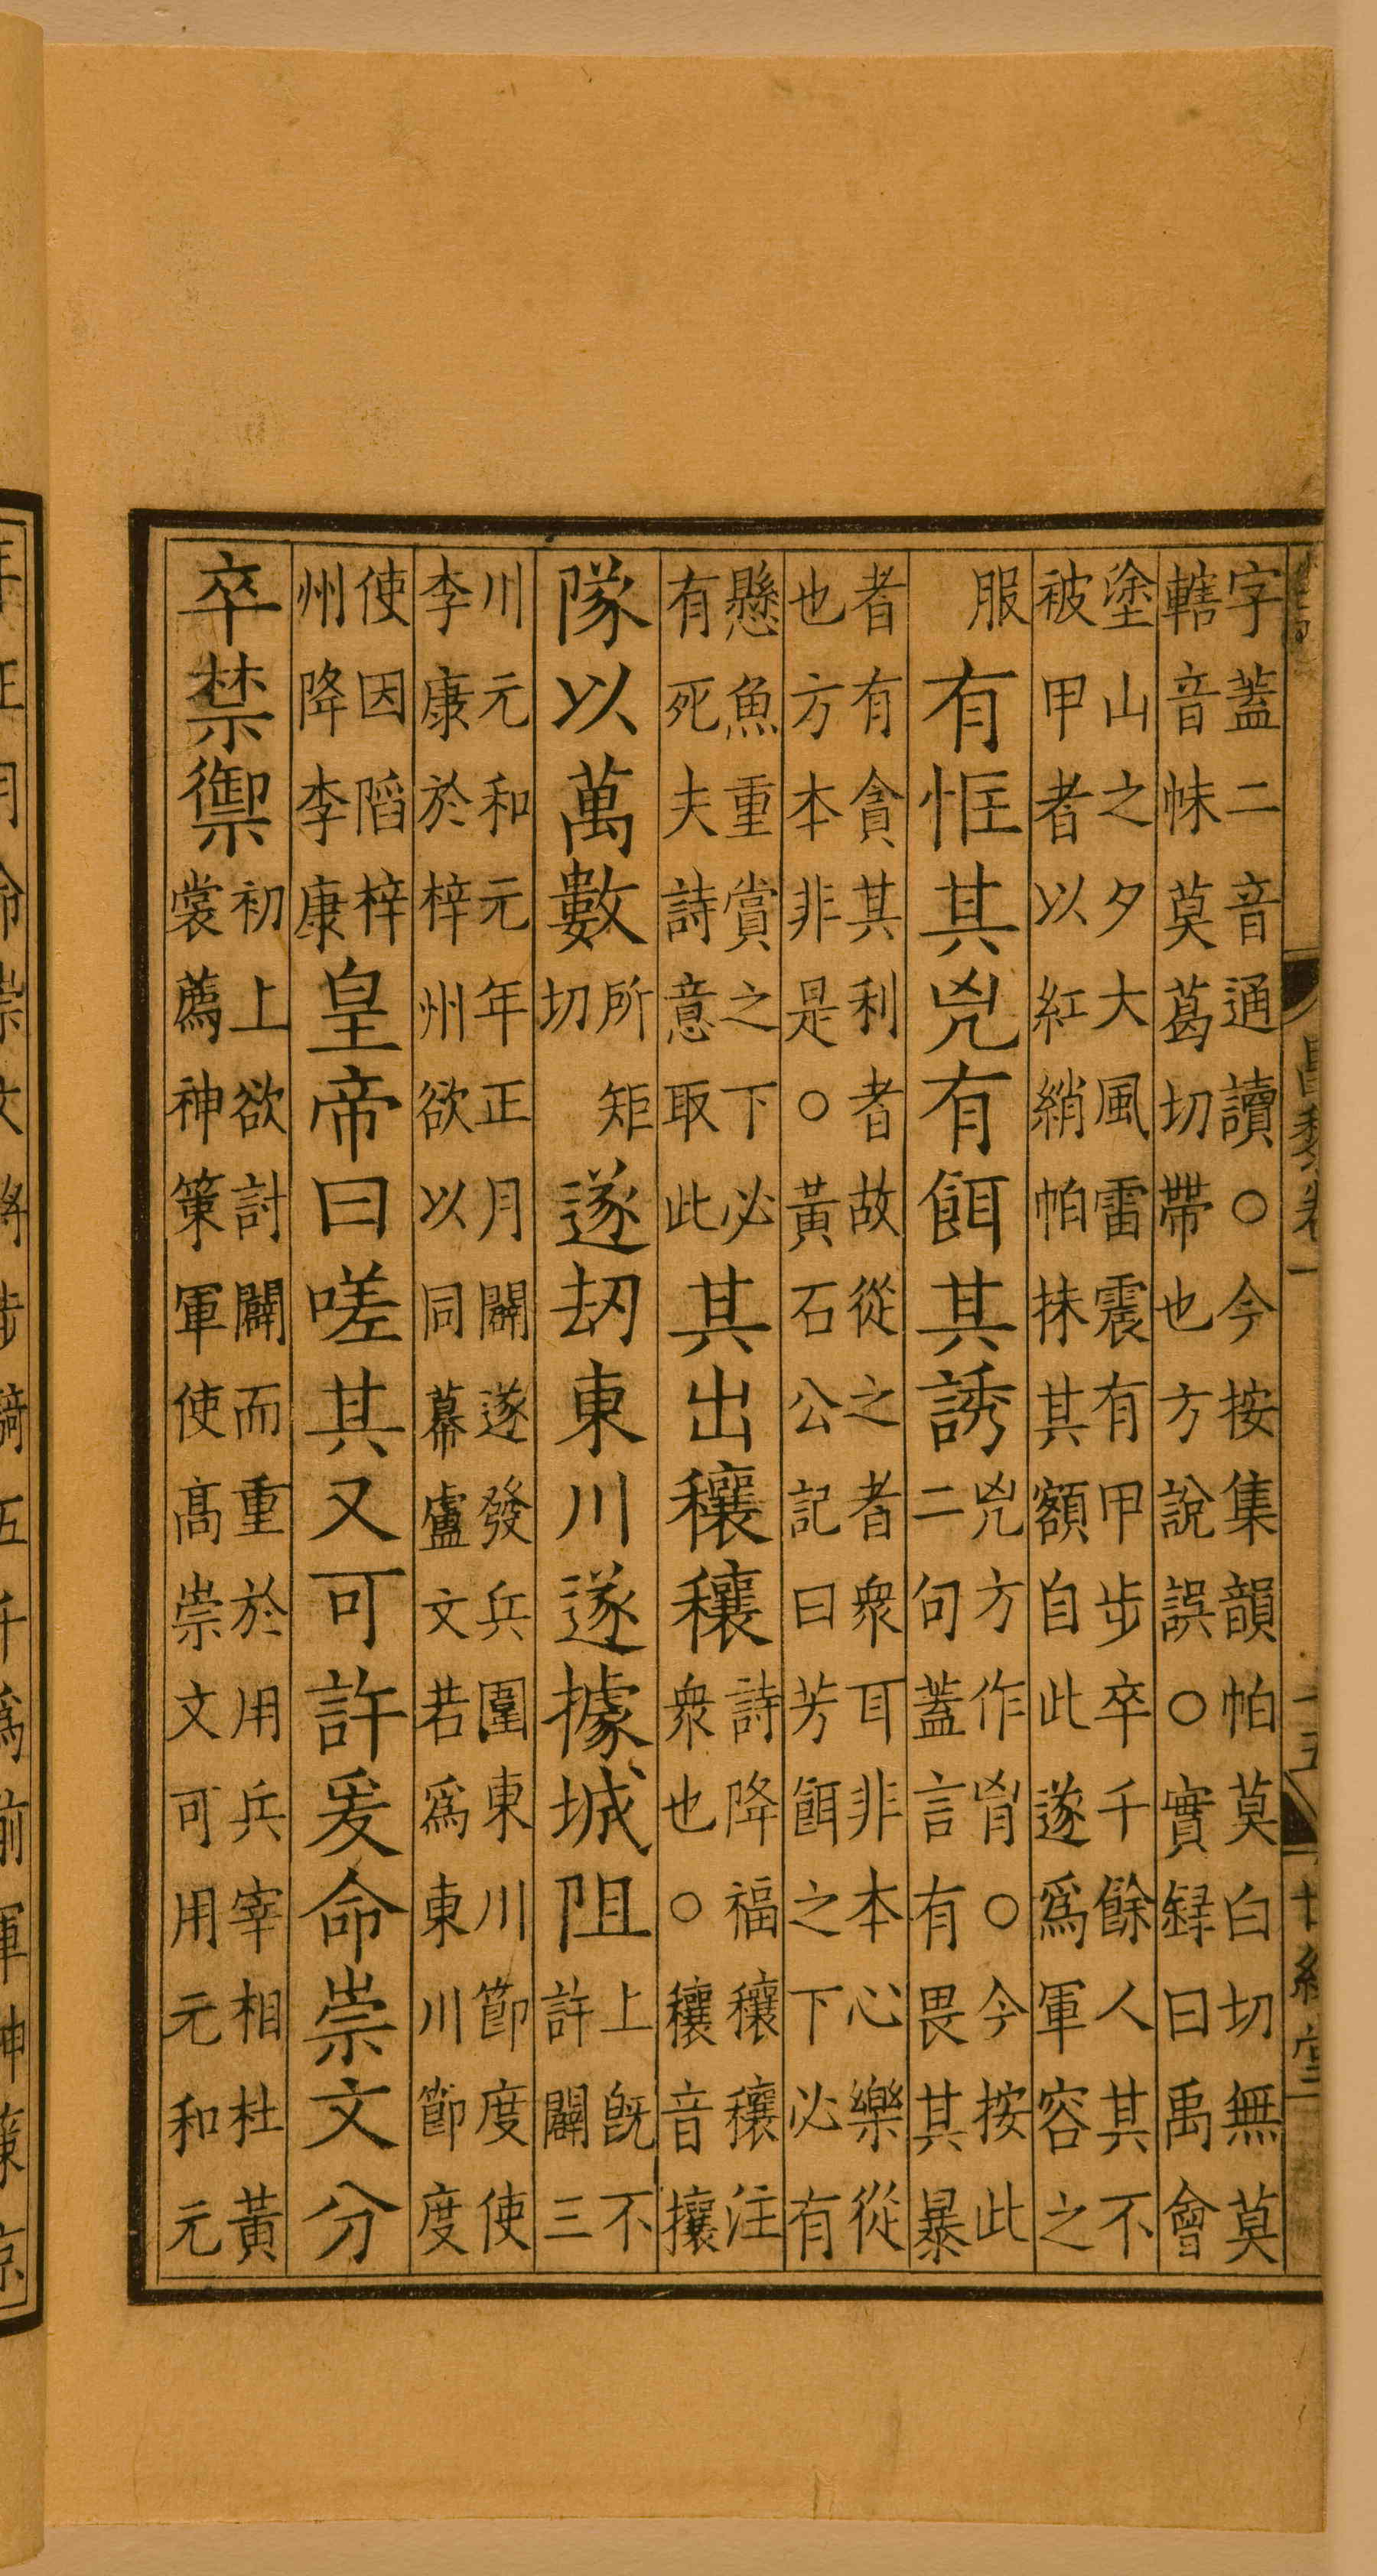 字蓋二音通讀○今按集韻帕莫白切無莫
轄音帓莫葛切帶也方說誤○實録曰禹會
塗山之夕大風雷震有甲步卒千餘人其不
被甲者以紅綃帕抹其額自此遂爲軍容之
服
有恇其兇有餌其誘
兇方作胷○今按此
二句蓋言有畏其暴
者有貪其利者故從之者衆耳非本心樂從
也方本非是○黃石公記曰芳餌之下必有
懸魚重賞之下必
有死夫詩意取此
其出穰穰
詩降福穰穰注
衆也○穰音攘
隊以萬數
所矩
切
遂刼東川遂據城阻
上旣不
許闢三
川元和元年正月闢遂發兵圍東川節度使
李康於梓州欲以同幕盧文若爲東川節度
使因䧟梓
州降李康
皇帝曰嗟其又可許爰命崇文分
卒禁禦
初上欲討闢而重於用兵宰相杜黃
裳薦神策軍使髙崇文可用元和元
昌黎卷一
十五